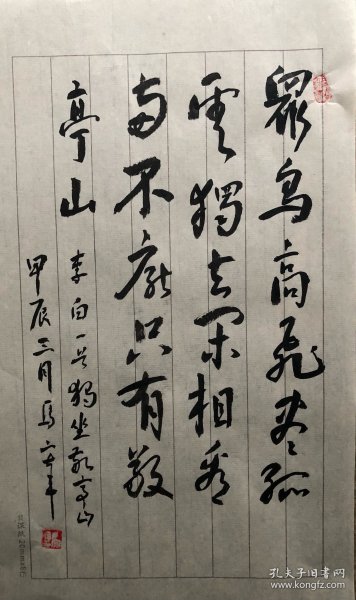 眾鳥高飛盡孤
雲獨去閑相看
兩不厭只有敬
亭山
李白一首獨坐敬亭山
甲辰三月馬
孔夫子旧书网
book.kongfz.com